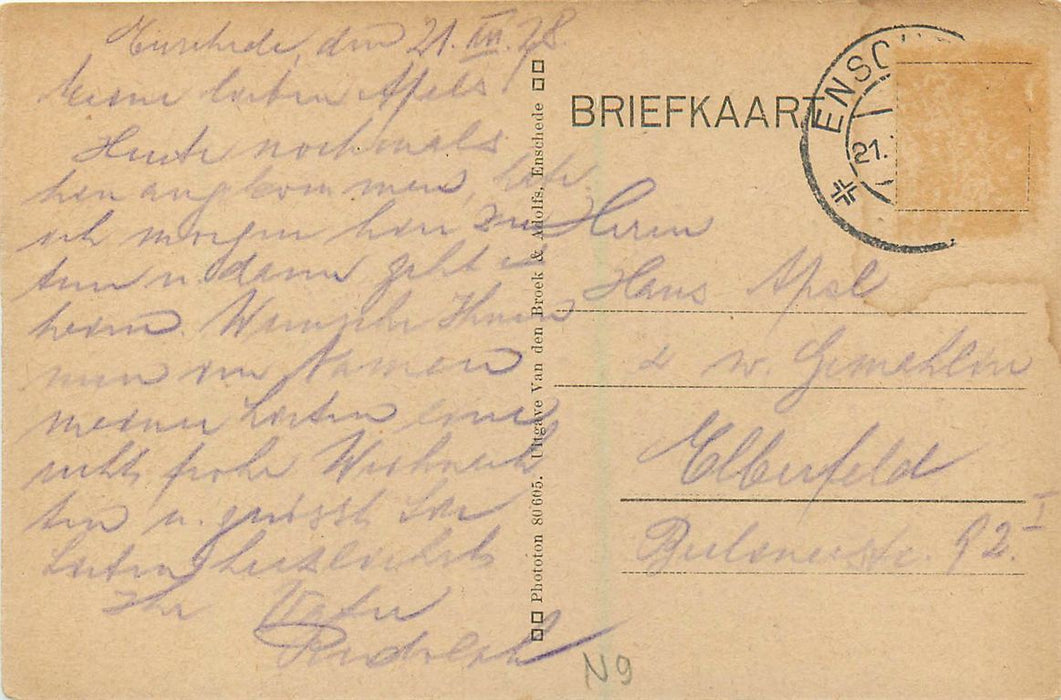 Enschede, den 21. XII. 28.
Meine lieben Apels!
Heute nochmals
hier angekommen,
ich morgen hier zu
tun u. dann geht es
heim. Wünsche Ihnen
nun im Namen
meiner Lieben eine
recht frohe Weihnach
ten u. grüsst Sie
herzlichst
Ihr Vater
Rudolph
Phototon 80605. Uitgave Van den Broek & Adolfs, Enschede
BRIEFKAART
ENSCH
21.
Herrn
Hans Apel
u. w. Gemahlin
Elberfeld
92 I
N9